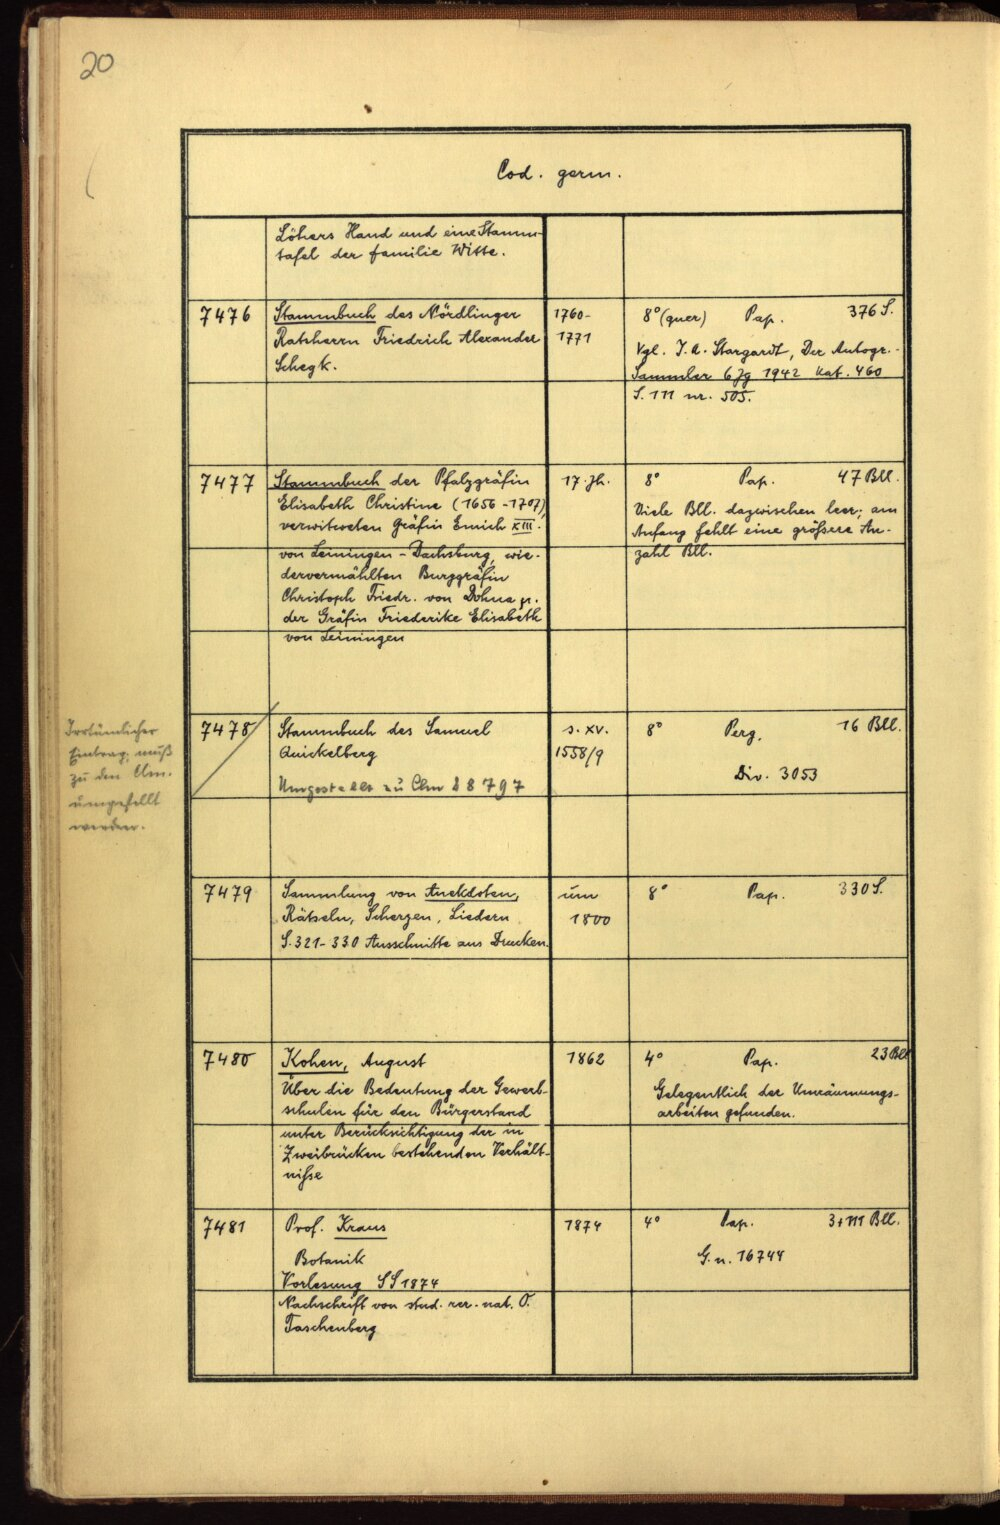 20
Cod. germ.
Löhers Hand und eine Stamm-
tafel der Familie Witte.
7476 Stammbuch des Nördlinger 1760- 8° (quer) Pap. 376 S.
Ratsherrn Friedrich Alexander 1771 Vgl. J. A. Stargardt, Der Autogr.-
Schegk. Sammler 6 Jg 1942 Kat. 460
S. 111 nr. 505.
7477 Stammbuch der Pfalzgräfin 17. Jh. 8° Pap. 47 Bll.
Elisabeth Christine (1656-1707), Viele Bll. dazwischen leer; am
verwitweten Gräfin Emich XIII. Anfang fehlt eine größere An-
von Leiningen-Dachsburg, wie- zahl Bll.
dervermählten Burggräfin
Christoph Friedr. von Dohna u.
der Gräfin Friederike Elisabeth
von Leiningen
Irrtümlicher
Eintrag; muß
zu den Clm.
umgestellt
werden.
7478 Stammbuch des Samuel s. XV. 8° Perg. 16 Bll.
Quickelberg 1558/9 Div. 3053
Umgestellt zu Clm 28797
7479 Sammlung von Anekdoten, um 8° Pap. 330 S.
Rätseln, Scherzen, Liedern 1800
S. 321-330 Ausschnitte aus Drucken.
7480 Kohen, August 1862 4° Pap. 23 Bll
Über die Bedeutung der Gewerb- Gelegentlich der Umräumungs-
schulen für den Bürgerstand arbeiten gefunden.
unter Berücksichtigung der in
Zweibrücken bestehenden Verhält-
nisse
7481 Prof. Kraus 1874 4° Pap. 3+111 Bll.
Botanik G. n. 16744
Vorlesung SS 1874
Nachschrift von stud. rer. nat. O.
Taschenberg